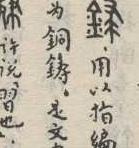 録,用以指編
为銅鑄。是文
許说,習也